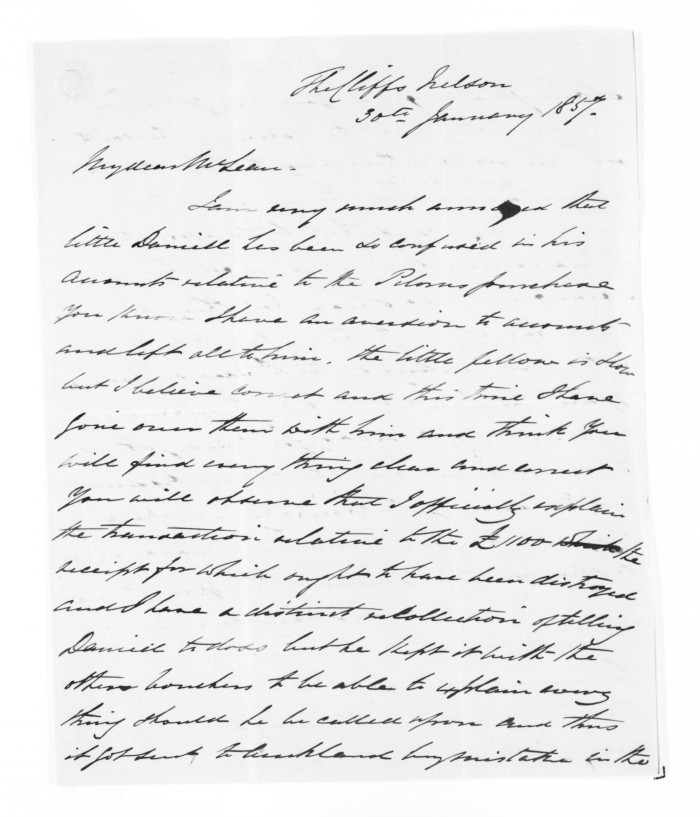 The Cliffs Nelson
30th January 1857.
My dear McLean.
I am very much annoyed that
little Daniell has been so confused in his
accounts relative to the Pelorus purchase
You know I have an aversion to accounts
and left all to him. the little fellow is slow
but I believe correct and this time I have
gone over them with him and think you
will find every thing clear and correct.
You will observe that I officially explain
the transaction relative to the £1100 the
receipt for which ought to have been distroyed
and I have a distinct recollection of telling
Daniell to do so but he kept it with the
other vouchers to be able to explain every
thing should he be called upon and thus
it got sent to Auckland by mistake in the